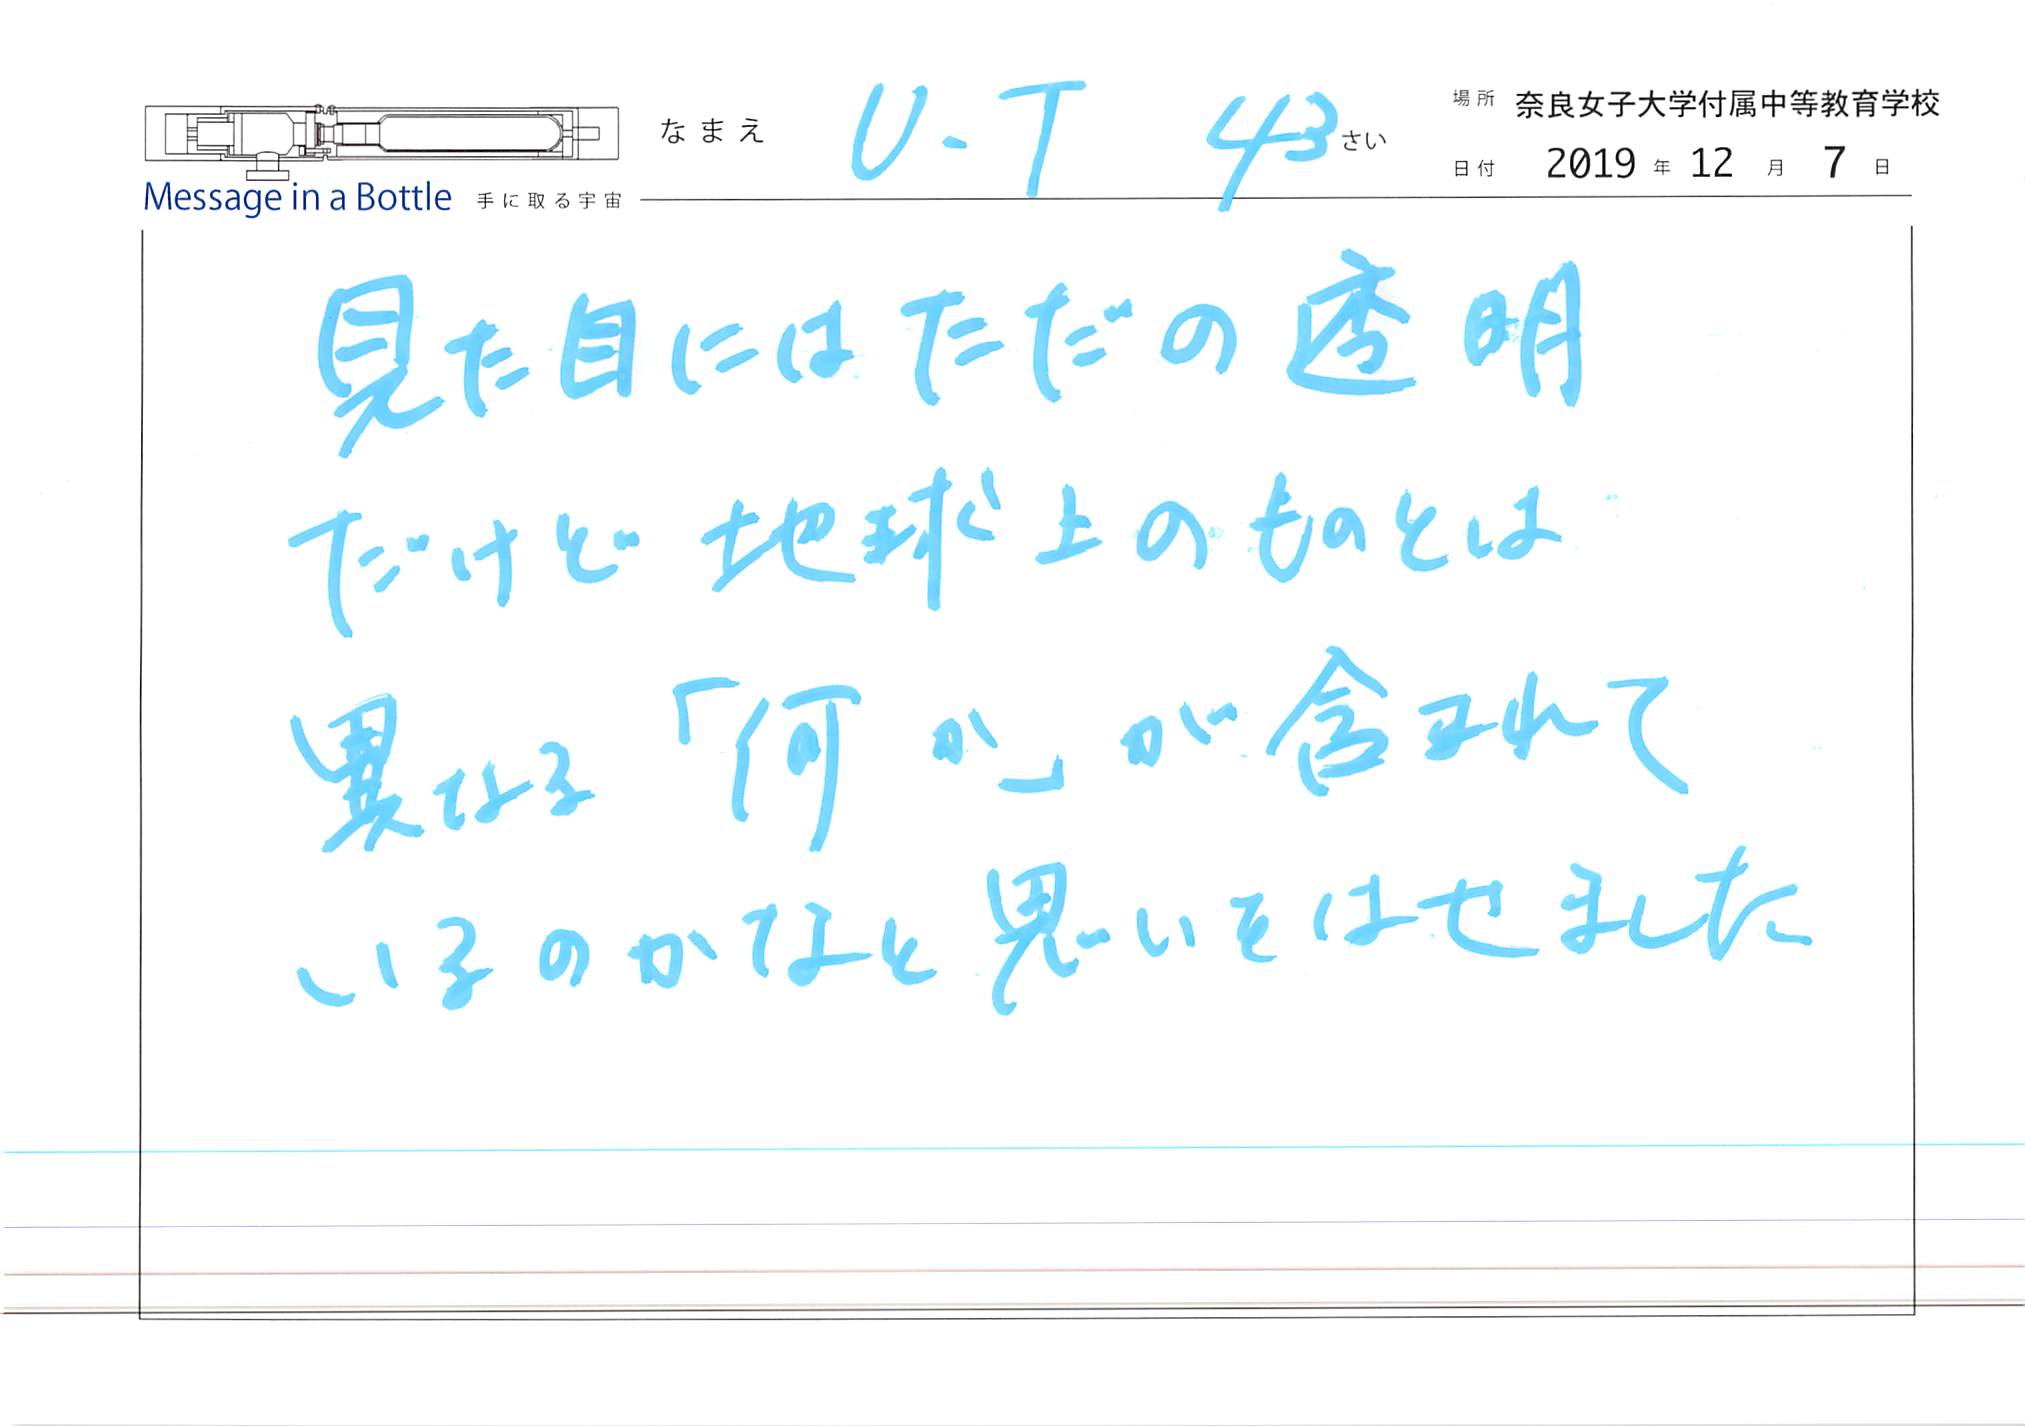 なまえ U-T 43さい
場所 奈良女子大学付属中等教育学校
日付 2019年12月7日
Message in a Bottle 手に取る宇宙
見た目にはただの透明
だけど地球上のものとは
異なる「何か」が含まれて
いるのかなと思いをはせました